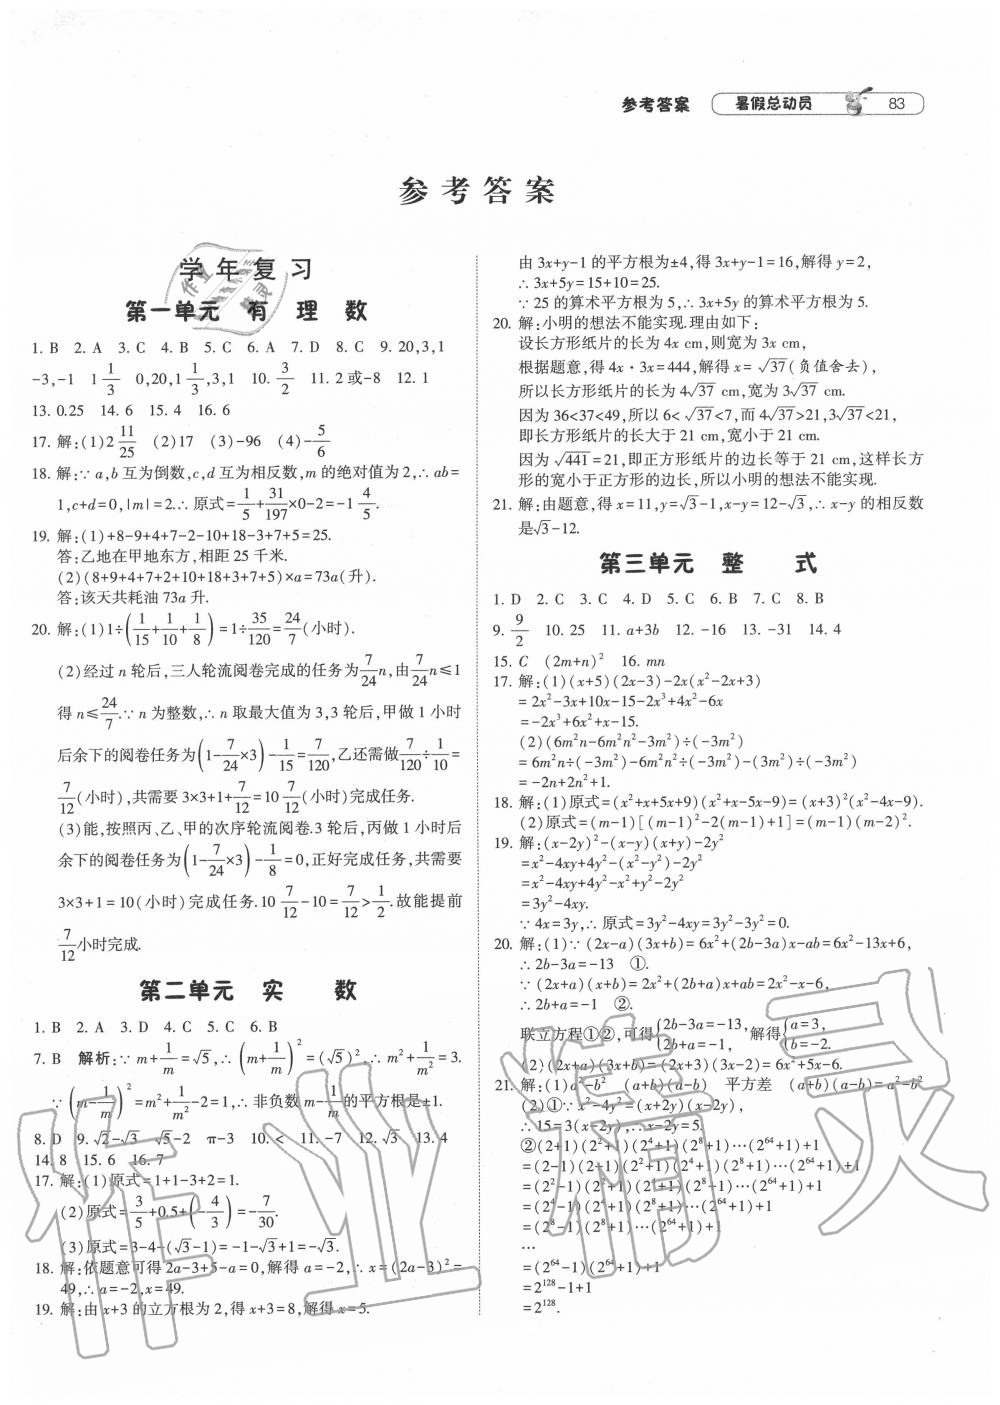 参考答案 暑假总动员 83
参考答案
学年复习
第一单元 有理数
1. B 2. A 3. C 4. B 5. C 6. A 7. D 8. C 9. 20,3,1
-3,-1 1 1/3 0,20,1 1/3,3,1 10. 3/2 11. 2或-8 12. 1
13. 0.25 14. 6 15. 4 16. 6
17. 解:(1)2 11/25 (2)17 (3)-96 (4)-5/6
18. 解:∵a,b互为倒数,c,d互为相反数,m的绝对值为2,∴ab=
1,c+d=0,|m|=2.∴原式=1/5+31/197×0-2=-1 4/5.
19. 解:(1)+8-9+4+7-2-10+18-3+7+5=25.
答:乙地在甲地东方,相距25千米.
(2)(8+9+4+7+2+10+18+3+7+5)×a=73a(升).
答:该天共耗油73a升.
20. 解:(1)1÷(1/15+1/10+1/8)=1÷35/120=24/7(小时).
(2)经过n轮后,三人轮流阅卷完成的任务为7/24n,由7/24n≤1
得n≤24/7.∵n为整数,∴n取最大值为3,3轮后,甲做1小时
后余下的阅卷任务为(1-7/24×3)-1/15=7/120,乙还需做7/120÷1/10=
7/12(小时),共需要3×3+1+7/12=10 7/12(小时)完成任务.
(3)能,按照丙、乙、甲的次序轮流阅卷.3轮后,丙做1小时后
余下的阅卷任务为(1-7/24×3)-1/8=0,正好完成任务,共需要
3×3+1=10(小时)完成任务.10 7/12-10=7/12>1/2.故能提前
7/12小时完成.
第二单元 实数
1. B 2. A 3. D 4. C 5. C 6. B
7. B 解析:∵m+1/m=√5,∴(m+1/m)²=(√5)²,∴m²+1/m²=3.
∵(m-1/m)²=m²+1/m²-2=1,∴非负数m-1/m的平方根是±1.
8. D 9. √2-√3 √5-2 π-3 10. < 11. -7 12. √3 13. 4
14. 8 15. 6 16. 7
17. 解:(1)原式=1+1-3+2=1.
(2)原式=3/5+0.5+(-4/3)=-7/30.
(3)原式=3-4-(√3-1)=-1-√3+1=-√3.
18. 解:依题意可得2a-3+5-a=0,解得a=-2,∴x=(2a-3)²=
49,∴a=-2,x=49.
19. 解:由x+3的立方根为2,得x+3=8,解得x=5.
由3x+y-1的平方根为±4,得3x+y-1=16,解得y=2,
∴3x+5y=15+10=25.
∵25的算术平方根为5,∴3x+5y的算术平方根为5.
20. 解:小明的想法不能实现.理由如下:
设长方形纸片的长为4x cm,则宽为3x cm,
根据题意,得4x·3x=444,解得x=√37(负值舍去),
所以长方形纸片的长为4√37 cm,宽为3√37 cm.
因为36<37<49,所以6<√37<7,而4√37>21,3√37<21,
即长方形纸片的长大于21 cm,宽小于21 cm.
因为√441=21,即正方形纸片的边长等于21 cm,这样长方
形的宽小于正方形的边长,所以小明的想法不能实现.
21. 解:由题意,得x=11,y=√3-1,x-y=12-√3,∴x-y的相反数
是√3-12.
第三单元 整式
1. D 2. C 3. C 4. D 5. C 6. B 7. C 8. B
9. 9/2 10. 25 11. a+3b 12. -16 13. -31 14. 4
15. C (2m+n)² 16. mn
17. 解:(1)(x+5)(2x-3)-2x(x²-2x+3)
=2x²-3x+10x-15-2x³+4x²-6x
=-2x³+6x²+x-15.
(2)(6m²n-6m²n²-3m²)÷(-3m²)
=6m²n÷(-3m²)-6m²n²÷(-3m²)-(3m²)÷(-3m²)
=-2n+2n²+1.
18. 解:(1)原式=(x²+x+5x+9)(x²+x-5x-9)=(x+3)²(x²-4x-9).
(2)原式=(m-1)[(m-1)²-2(m-1)+1]=(m-1)(m-2)².
19. 解:(x-2y)²-(x-y)(x+y)-2y²
=x²-4xy+4y²-(x²-y²)-2y²
=x²-4xy+4y²-x²+y²-2y²
=3y²-4xy.
∵4x=3y,∴原式=3y²-4xy=3y²-3y²=0.
20. 解:(1)∵(2x-a)(3x+b)=6x²+(2b-3a)x-ab=6x²-13x+6,
∴2b-3a=-13 ①.
∵(2x+a)(x+b)=2x²+(2b+a)x+ab=2x²-x-6,
∴2b+a=-1 ②.
联立方程①②,可得{2b-3a=-13, 2b+a=-1, 解得{a=3, b=-2.
(2)(2x+a)(3x+b)=(2x+3)(3x-2)=6x²+5x-6.
21. 解:(1)a²-b² (a+b)(a-b) 平方差 (a+b)(a-b)=a²-b²
(2)①∵x²-4y²=(x+2y)(x-2y),
∴15=3(x-2y),∴x-2y=5.
②(2+1)(2²+1)(2⁴+1)(2⁸+1)…(2⁶⁴+1)+1
=(2-1)(2+1)(2²+1)(2⁴+1)(2⁸+1)…(2⁶⁴+1)+1
=(2²-1)(2²+1)(2⁴+1)(2⁸+1)…(2⁶⁴+1)+1
=(2⁴-1)(2⁴+1)(2⁸+1)…(2⁶⁴+1)+1
=(2⁸-1)(2⁸+1)…(2⁶⁴+1)+1
…
=(2⁶⁴-1)(2⁶⁴+1)+1
=2¹²⁸-1+1
=2¹²⁸.
作业精灵